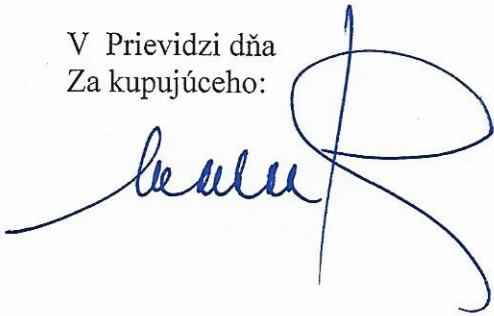 V Prievidzi dňa
Za kupujúceho: